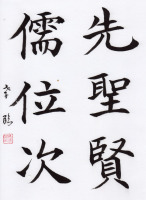 先聖賢
儒位次